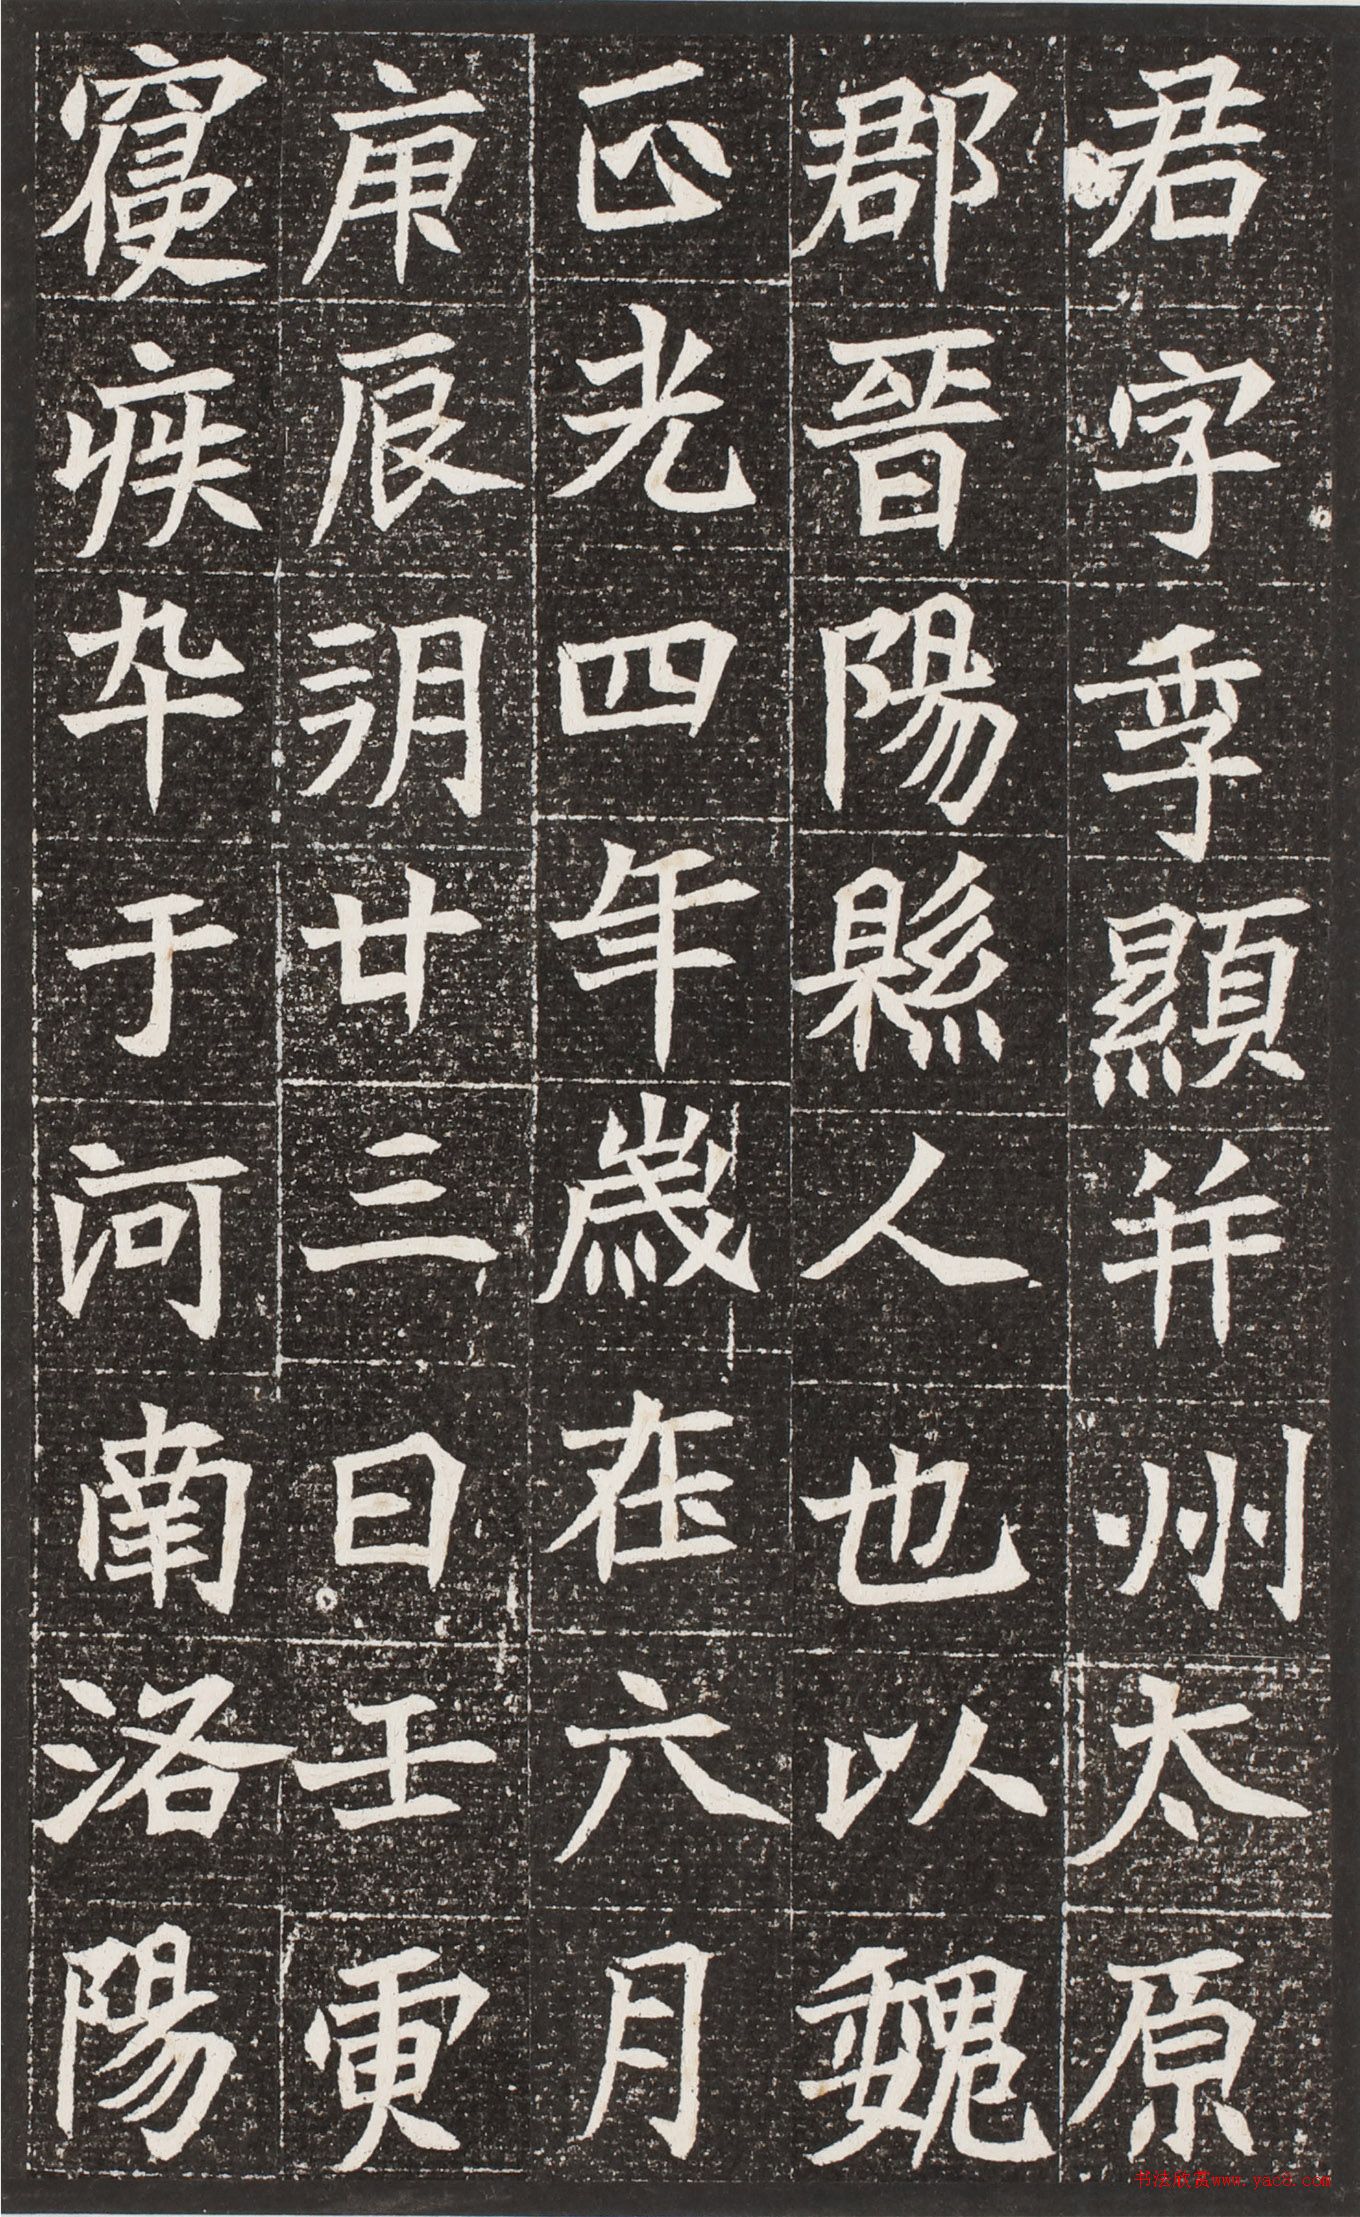 君字季顯并州太原
郡晉陽縣人也以魏
正光四年歲在六月
庚辰朔廿三日壬寅
寑疾卒于河南洛陽
书法欣赏www.yac8.com